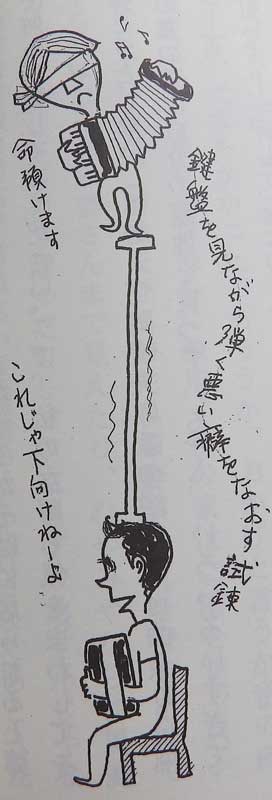 鍵盤を見ながら弾く悪い癖をなおす試錬
命預けます
これじゃ下向けねーよ